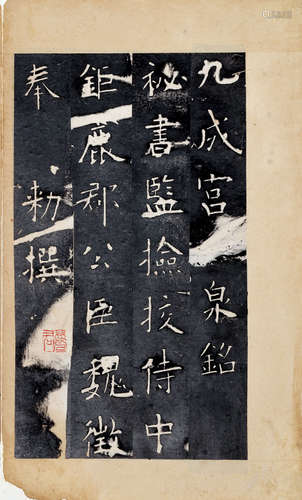 九成宮泉銘
祕書監撿挍侍中
鉅鹿郡公臣魏徵
奉勅撰